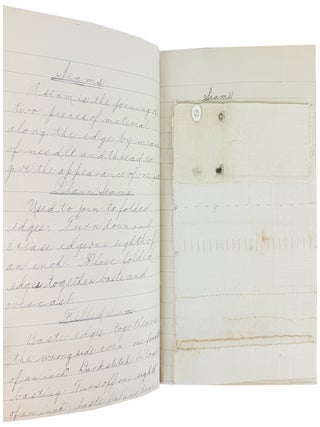 Seams.
A seam is the joining of
two pieces of material
along the edge by means
of needle and thread to
give the appearance of one
Plain Seams
Used to join to folded
edges: Turn down and
crease edge one eighth of
an inch. Place folded
edges together baste and
overcast.
Felled Seam
Baste edges together on
the wrong side even one
of an inch Backstitch below
basting Turn off one eighth
of an inch, baste flat and
Seams